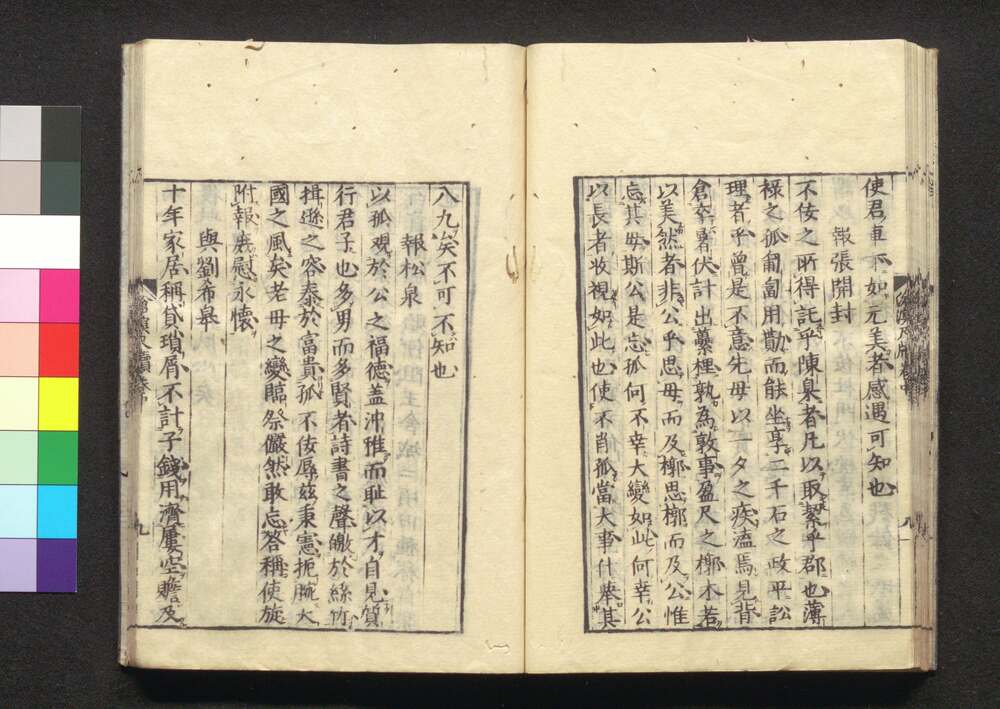 使君車不如元美者感遇可知也
報張開封
不佞之所得託乎陳臬者凡以取絜乎郡也薄
祿之孤匍匐用勸而能坐享二千石之政平訟
理者乎曾是不意先母以一夕之疾溘焉見背
倉卒暑伏計出蘽梩孰為敦事盈尺之槨木若
以美然者非公乎思母而及槨思槨而及公惟
忘其母斯公是忘孤何不幸大變如此何幸公
以長者收視如此也使不肖孤當大事什舉其
八九矣不可不知也
報松泉
以孤觀於公之福德蓋沖雅而恥以才自見質
行君子也多男而多賢者詩書之聲皦於絲竹
揖遜之容泰於富貴孤不佞辱茲秉憲扼腕大
國之風矣老母之變賜祭儼然敢忘荅稱使旋
附報庶慰永懷
與劉布皋
十年家居稱貸瑣屑不計子錢用濟屢空贍及
九